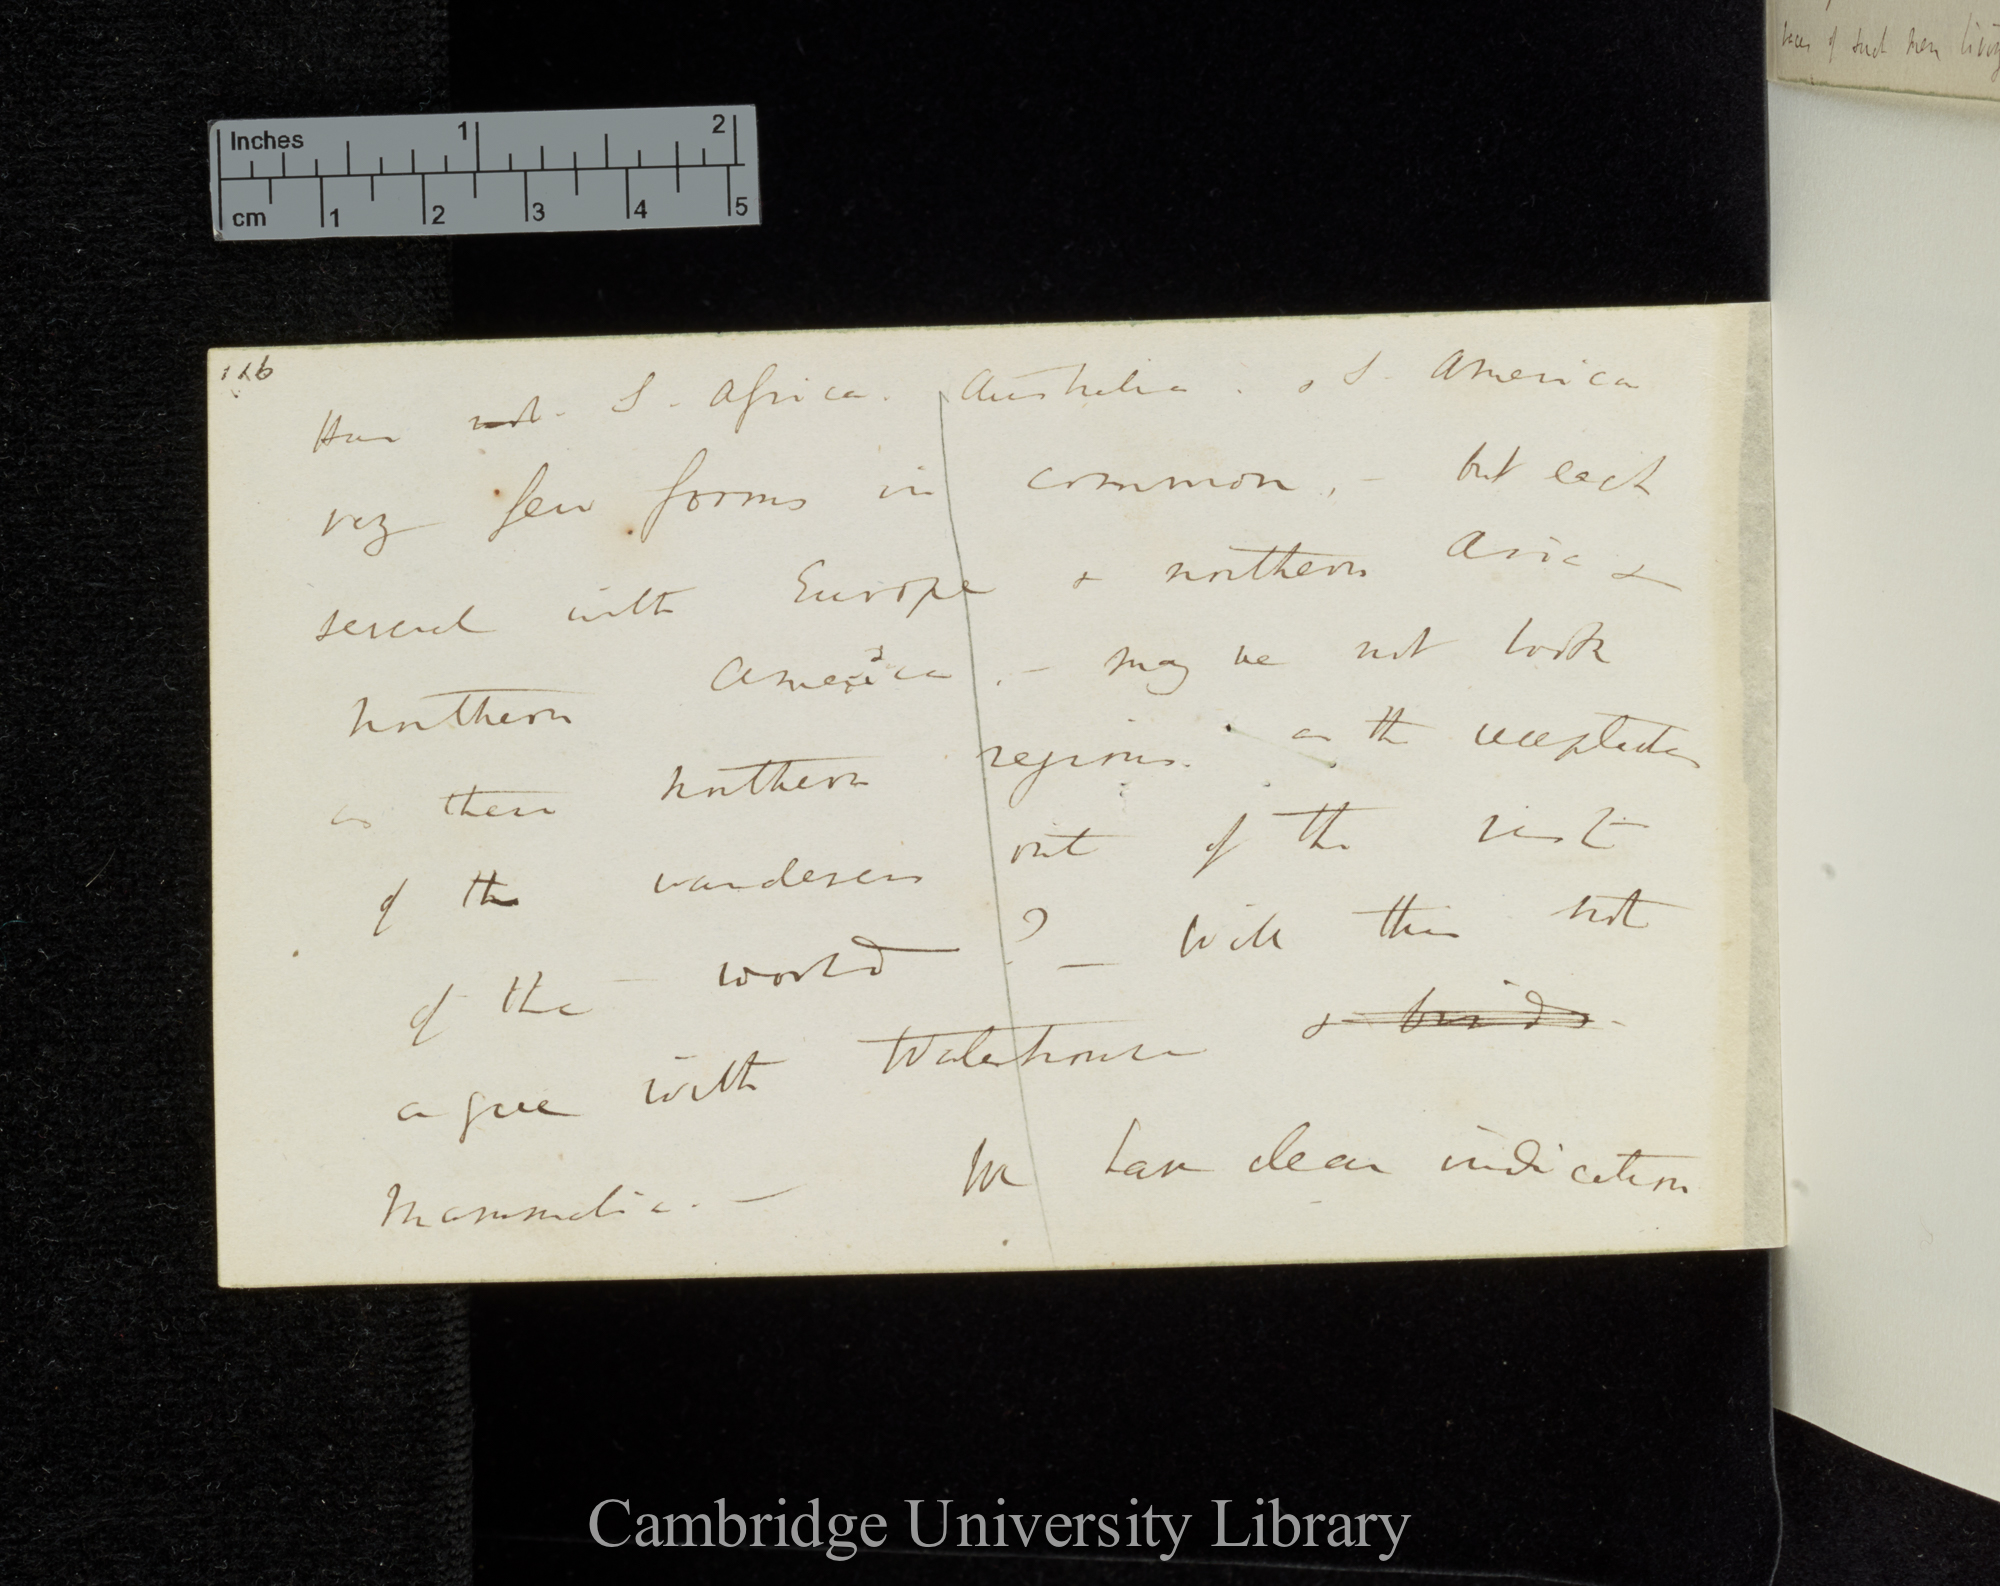 Inches
1
2
cm
1
2
3
4
5
races of such men living
126
Have not S. Africa. Australia. & S. America
very few forms in common, — but each
several with Europe & northern Asia &
northern America, — may we not look
as these northern regions. as the receptacles
of the wanderers out of the rest
of the world? — Will this not
agree with Waterhouse & birds.
Mammalia. — We have clear indication
Cambridge University Library